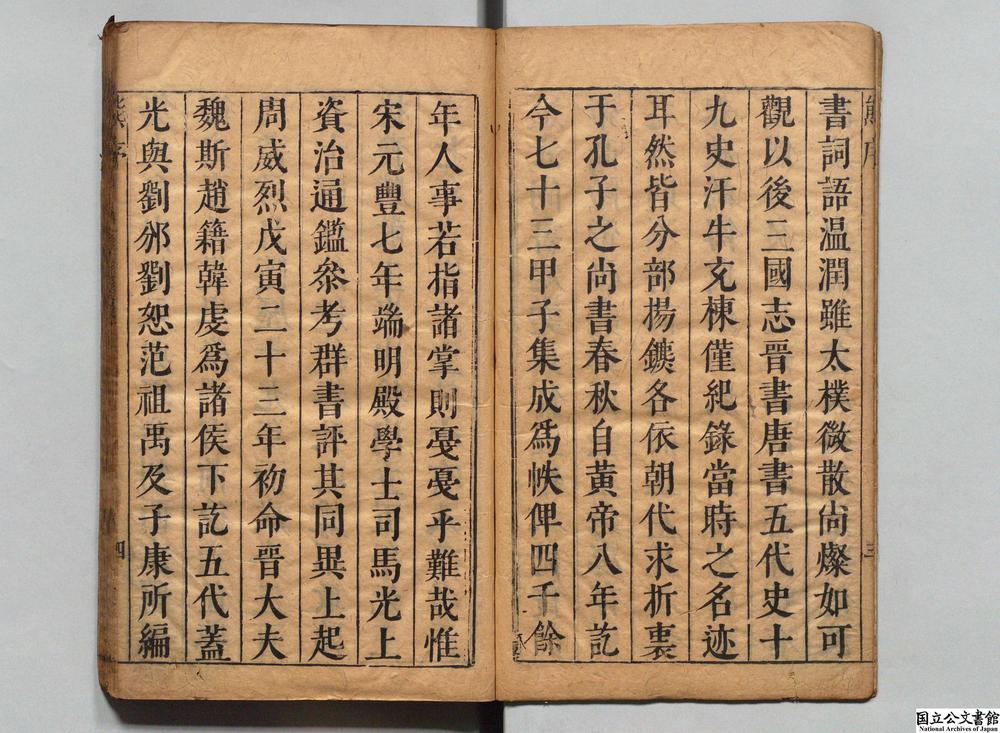 書詞語温潤雖太樸微散尚燦如可
觀以後三國志晉書唐書五代史十
九史汗牛充棟僅紀錄當時之名迹
耳然皆分部揚鑣各依朝代求折衷
于孔子之尚書春秋自黄帝八年訖
今七十三甲子集成爲帙俾四千餘
年人事若指諸掌則戞戞乎難哉惟
宋元豐七年端明殿學士司馬光上
資治通鑑叅考群書評其同異上起
周威烈戊寅二十三年初命晉大夫
魏斯趙籍韓虔爲諸侯下訖五代蓋
光與劉邠劉恕范祖禹及子康所編
熊序
三
熊序
四
国立公文書館
National Archives of Japan